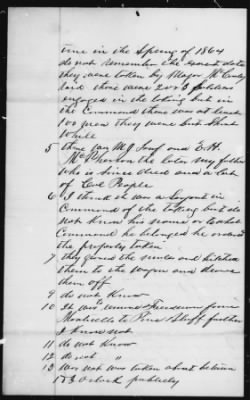 time in the Spring of 1864
do not remember the exact date
they were taken by Major McCauly
said there were 2 or 3 soldiers
engaged in the taking but in
the Command there was at least
100 men they were but Short
While
5 there was M J and E. H.
McPherson the later my father
who is since dead and a lot
of Col People
6 I think it was a Sargent in
Command of the taking but do
not Know his name or to what
Command he belonged he ordered
the property taken
7 they geared the mules and hitched
them to the wagon and drove
them off
9 do not Know
10 It was around from
Monticello to Pine Bluff further
I Know not
11 do not Know
12 do not "
13 was not was taken about between
1 & 3 Oclock publicly